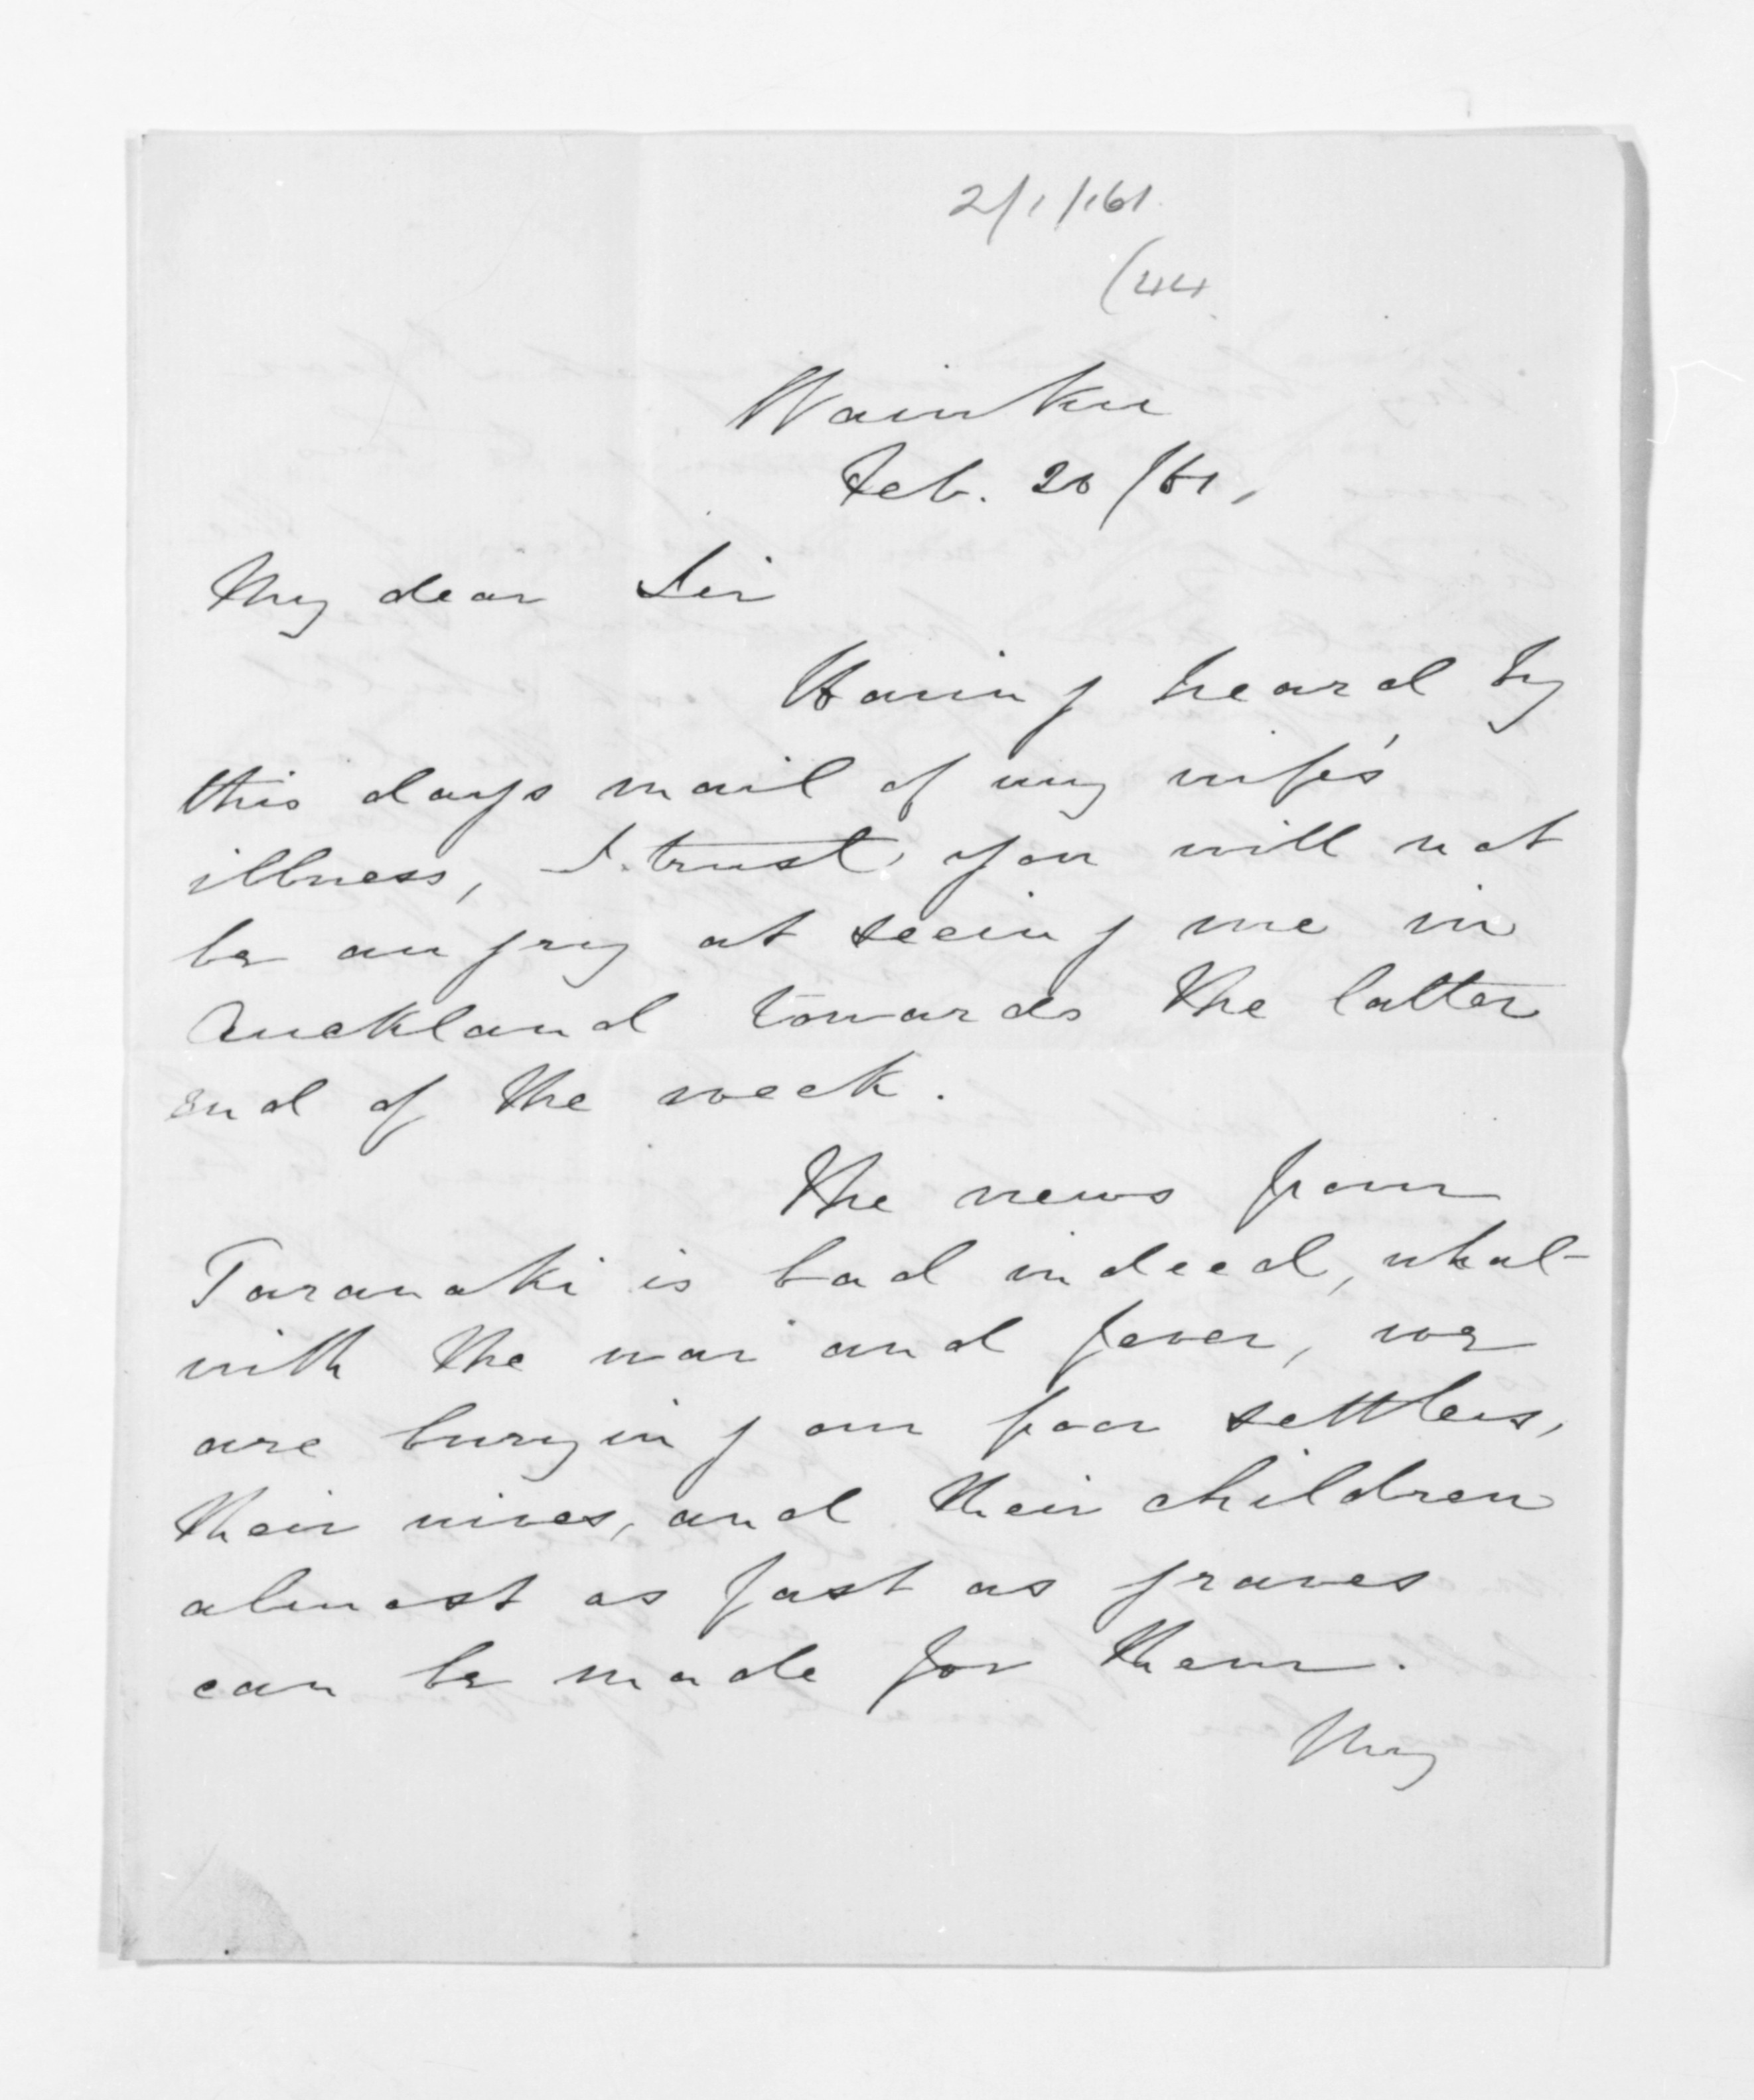 2/1/161
(44
Waiuku
Feb. 20/61,
My dear Sir
Having heard by
this days mail of my wife's
illness, I trust you will not
be angry at seeing me in
Auckland towards the latter
end of the week.
The news from
Taranaki is bad indeed, what
with the war and fever, we
are burying our poor settlers,
their wives, and their children
almost as fast as graves
can be made for them.
May